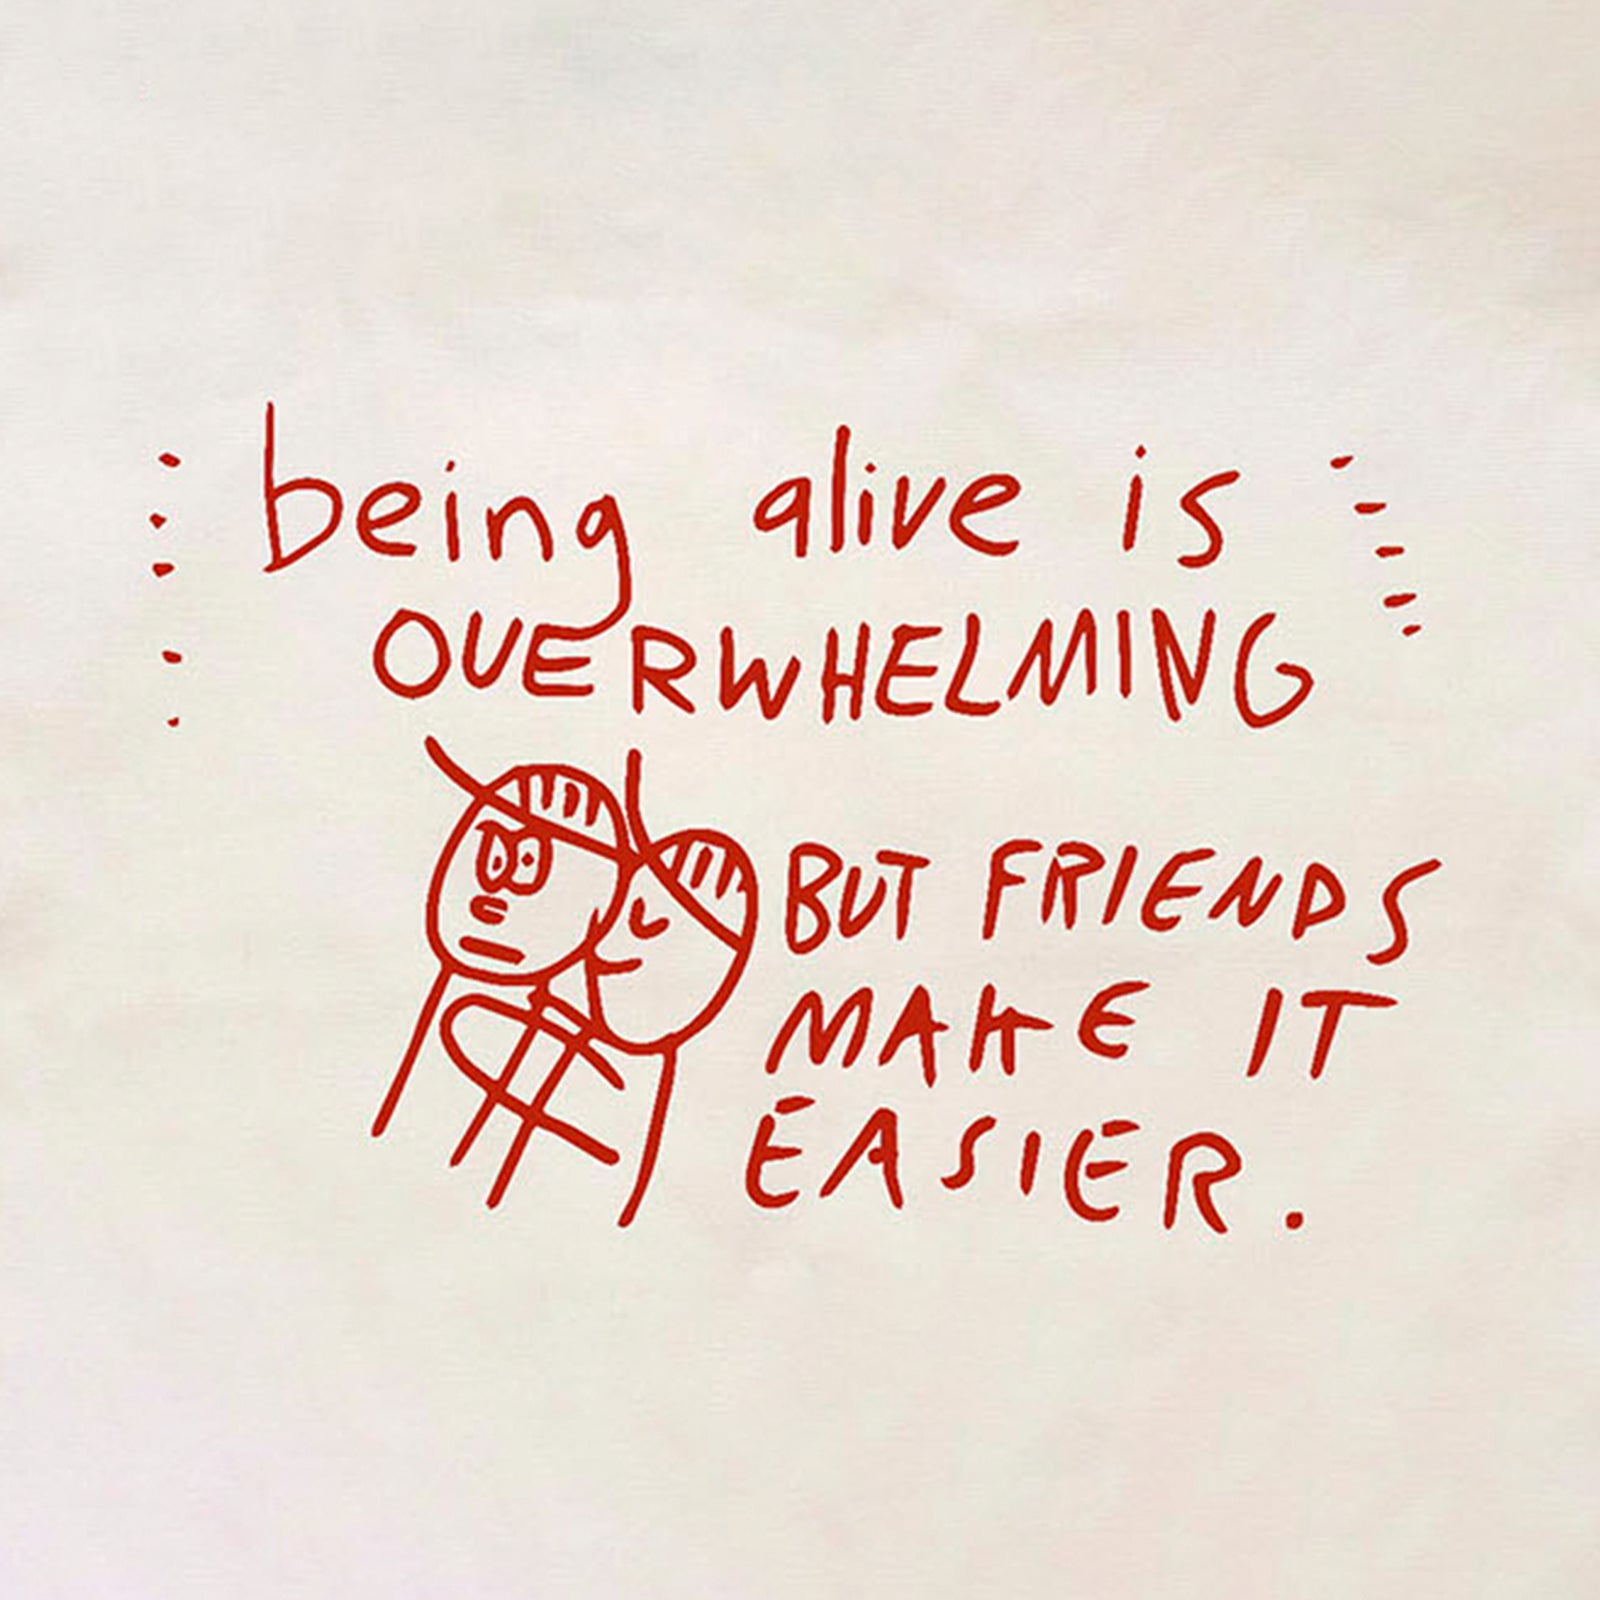 being alive is
OVERWHELMING
BUT FRIENDS
MAKE IT
EASIER.